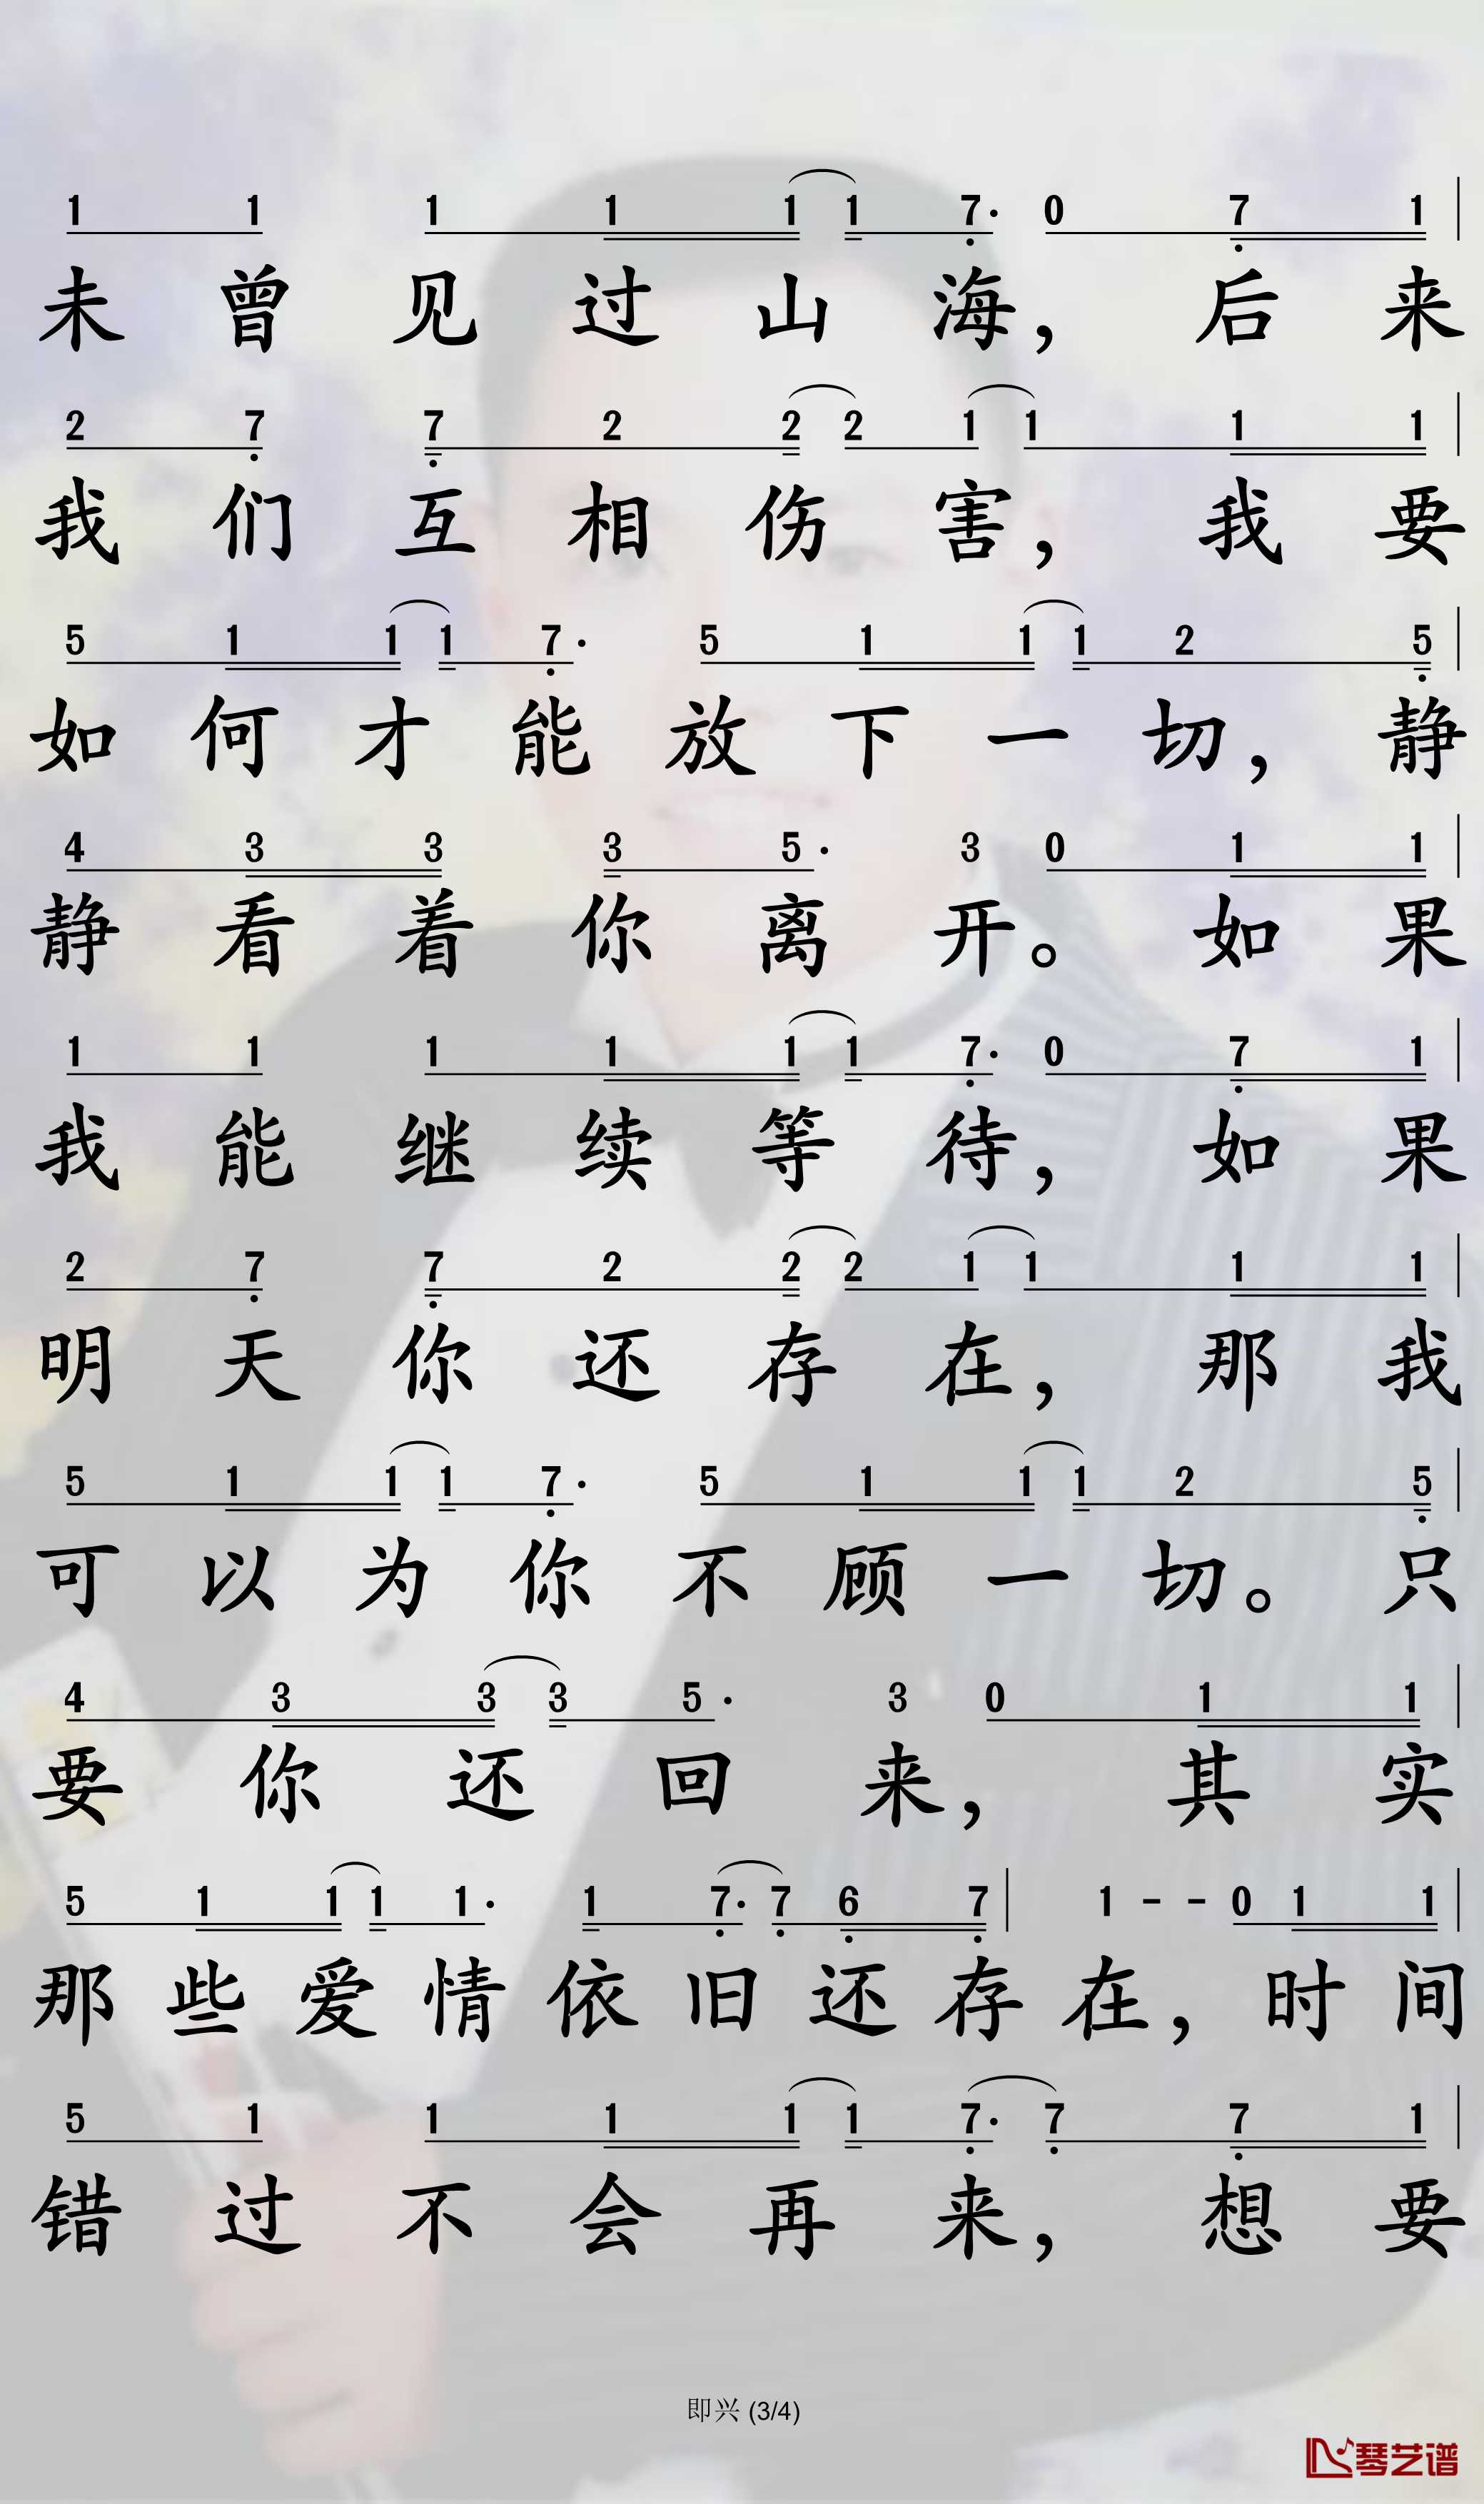 1 1 1 1 1 1 7· 0 7 1
未曾见过山海，后来
2 7 7 2 2 2 1 1 1 1
我们互相伤害，我要
5 1 1 1 7· 5 1 1 1 2 5
如何才能放下一切，静
4 3 3 3 5· 3 0 1 1
静看着你离开。如果
1 1 1 1 1 1 7· 0 7 1
我能继续等待，如果
2 7 7 2 2 2 1 1 1 1
明天你还存在，那我
5 1 1 1 7· 5 1 1 1 2 5
可以为你不顾一切。只
4 3 3 3 5· 3 0 1 1
要你还回来，其实
5 1 1 1 1· 1 7· 7 6 7 | 1 - - 0 1 1
那些爱情依旧还存在，时间
5 1 1 1 1 1 7· 7 7 1
错过不会再来，想要
即兴 (3/4)
琴艺谱